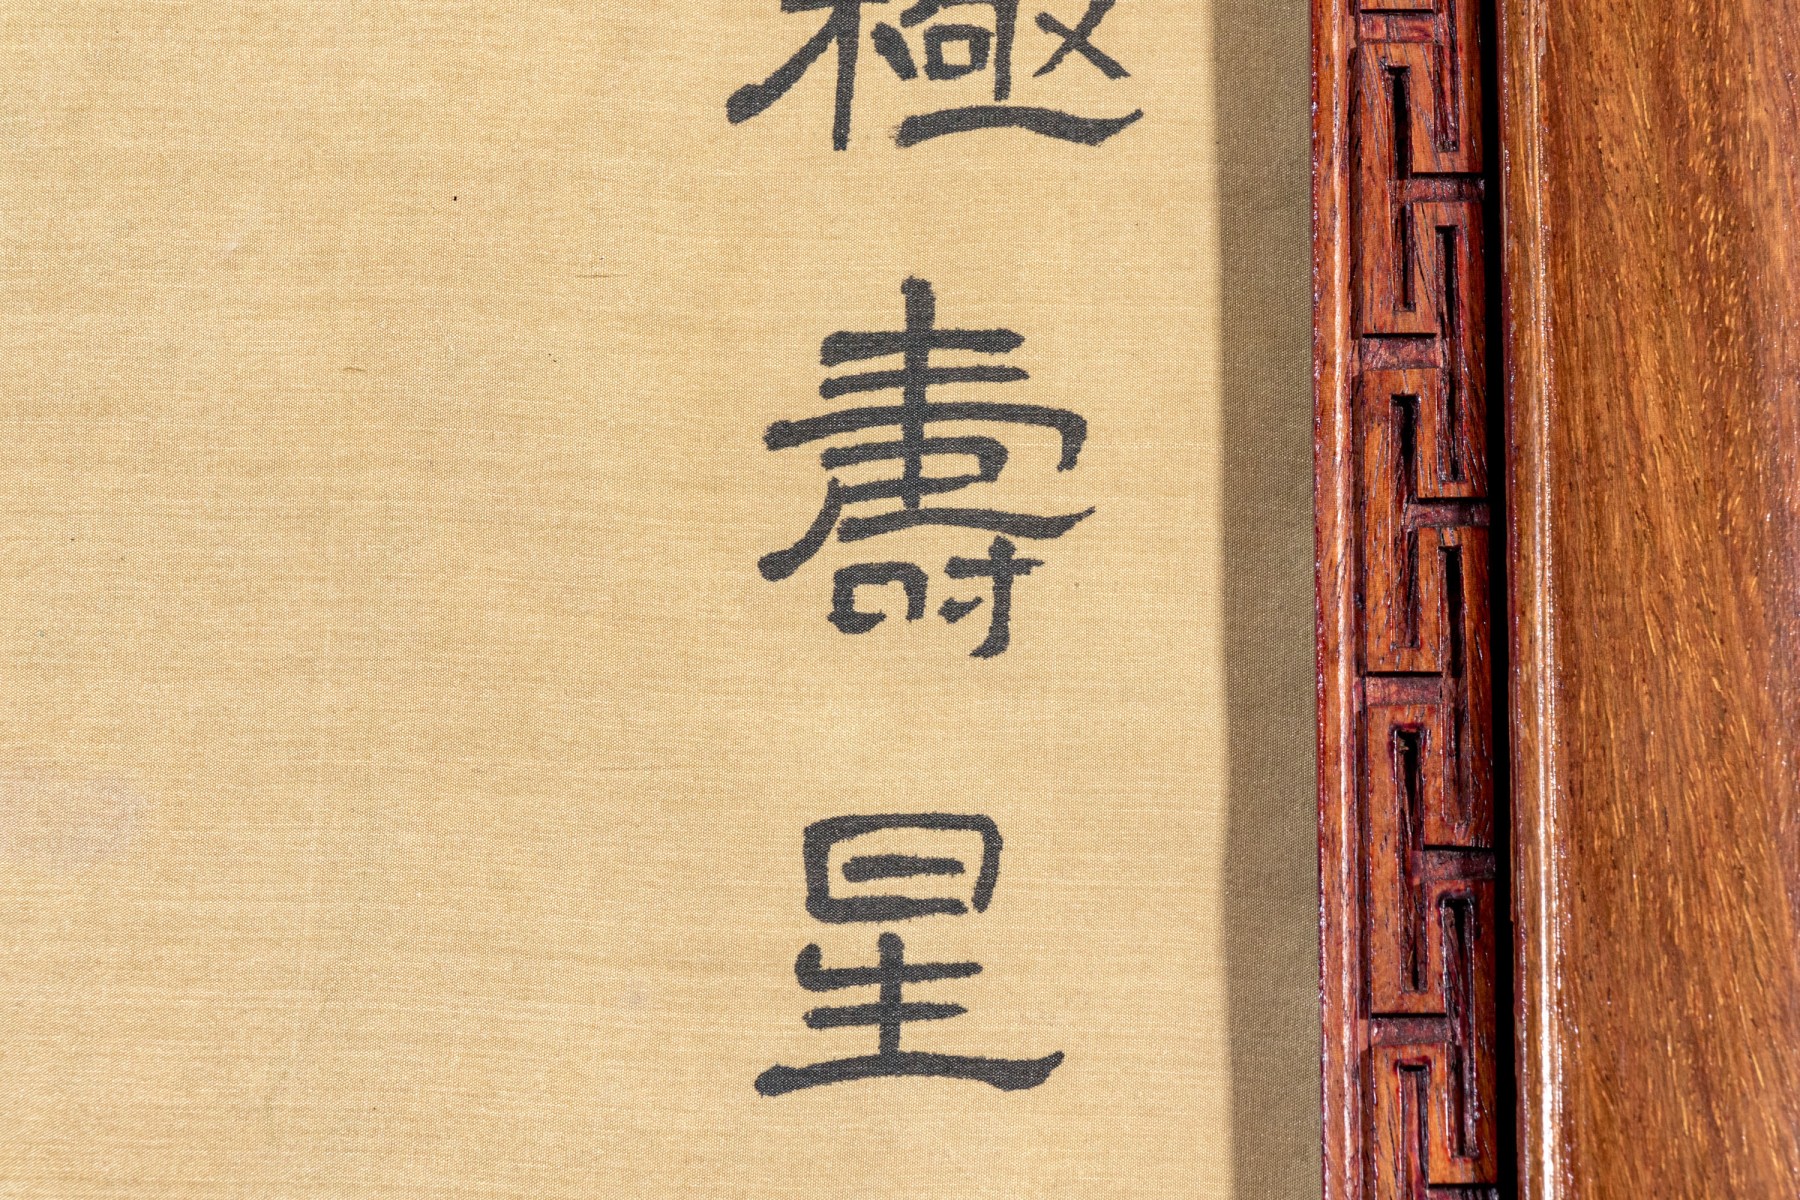 極壽星